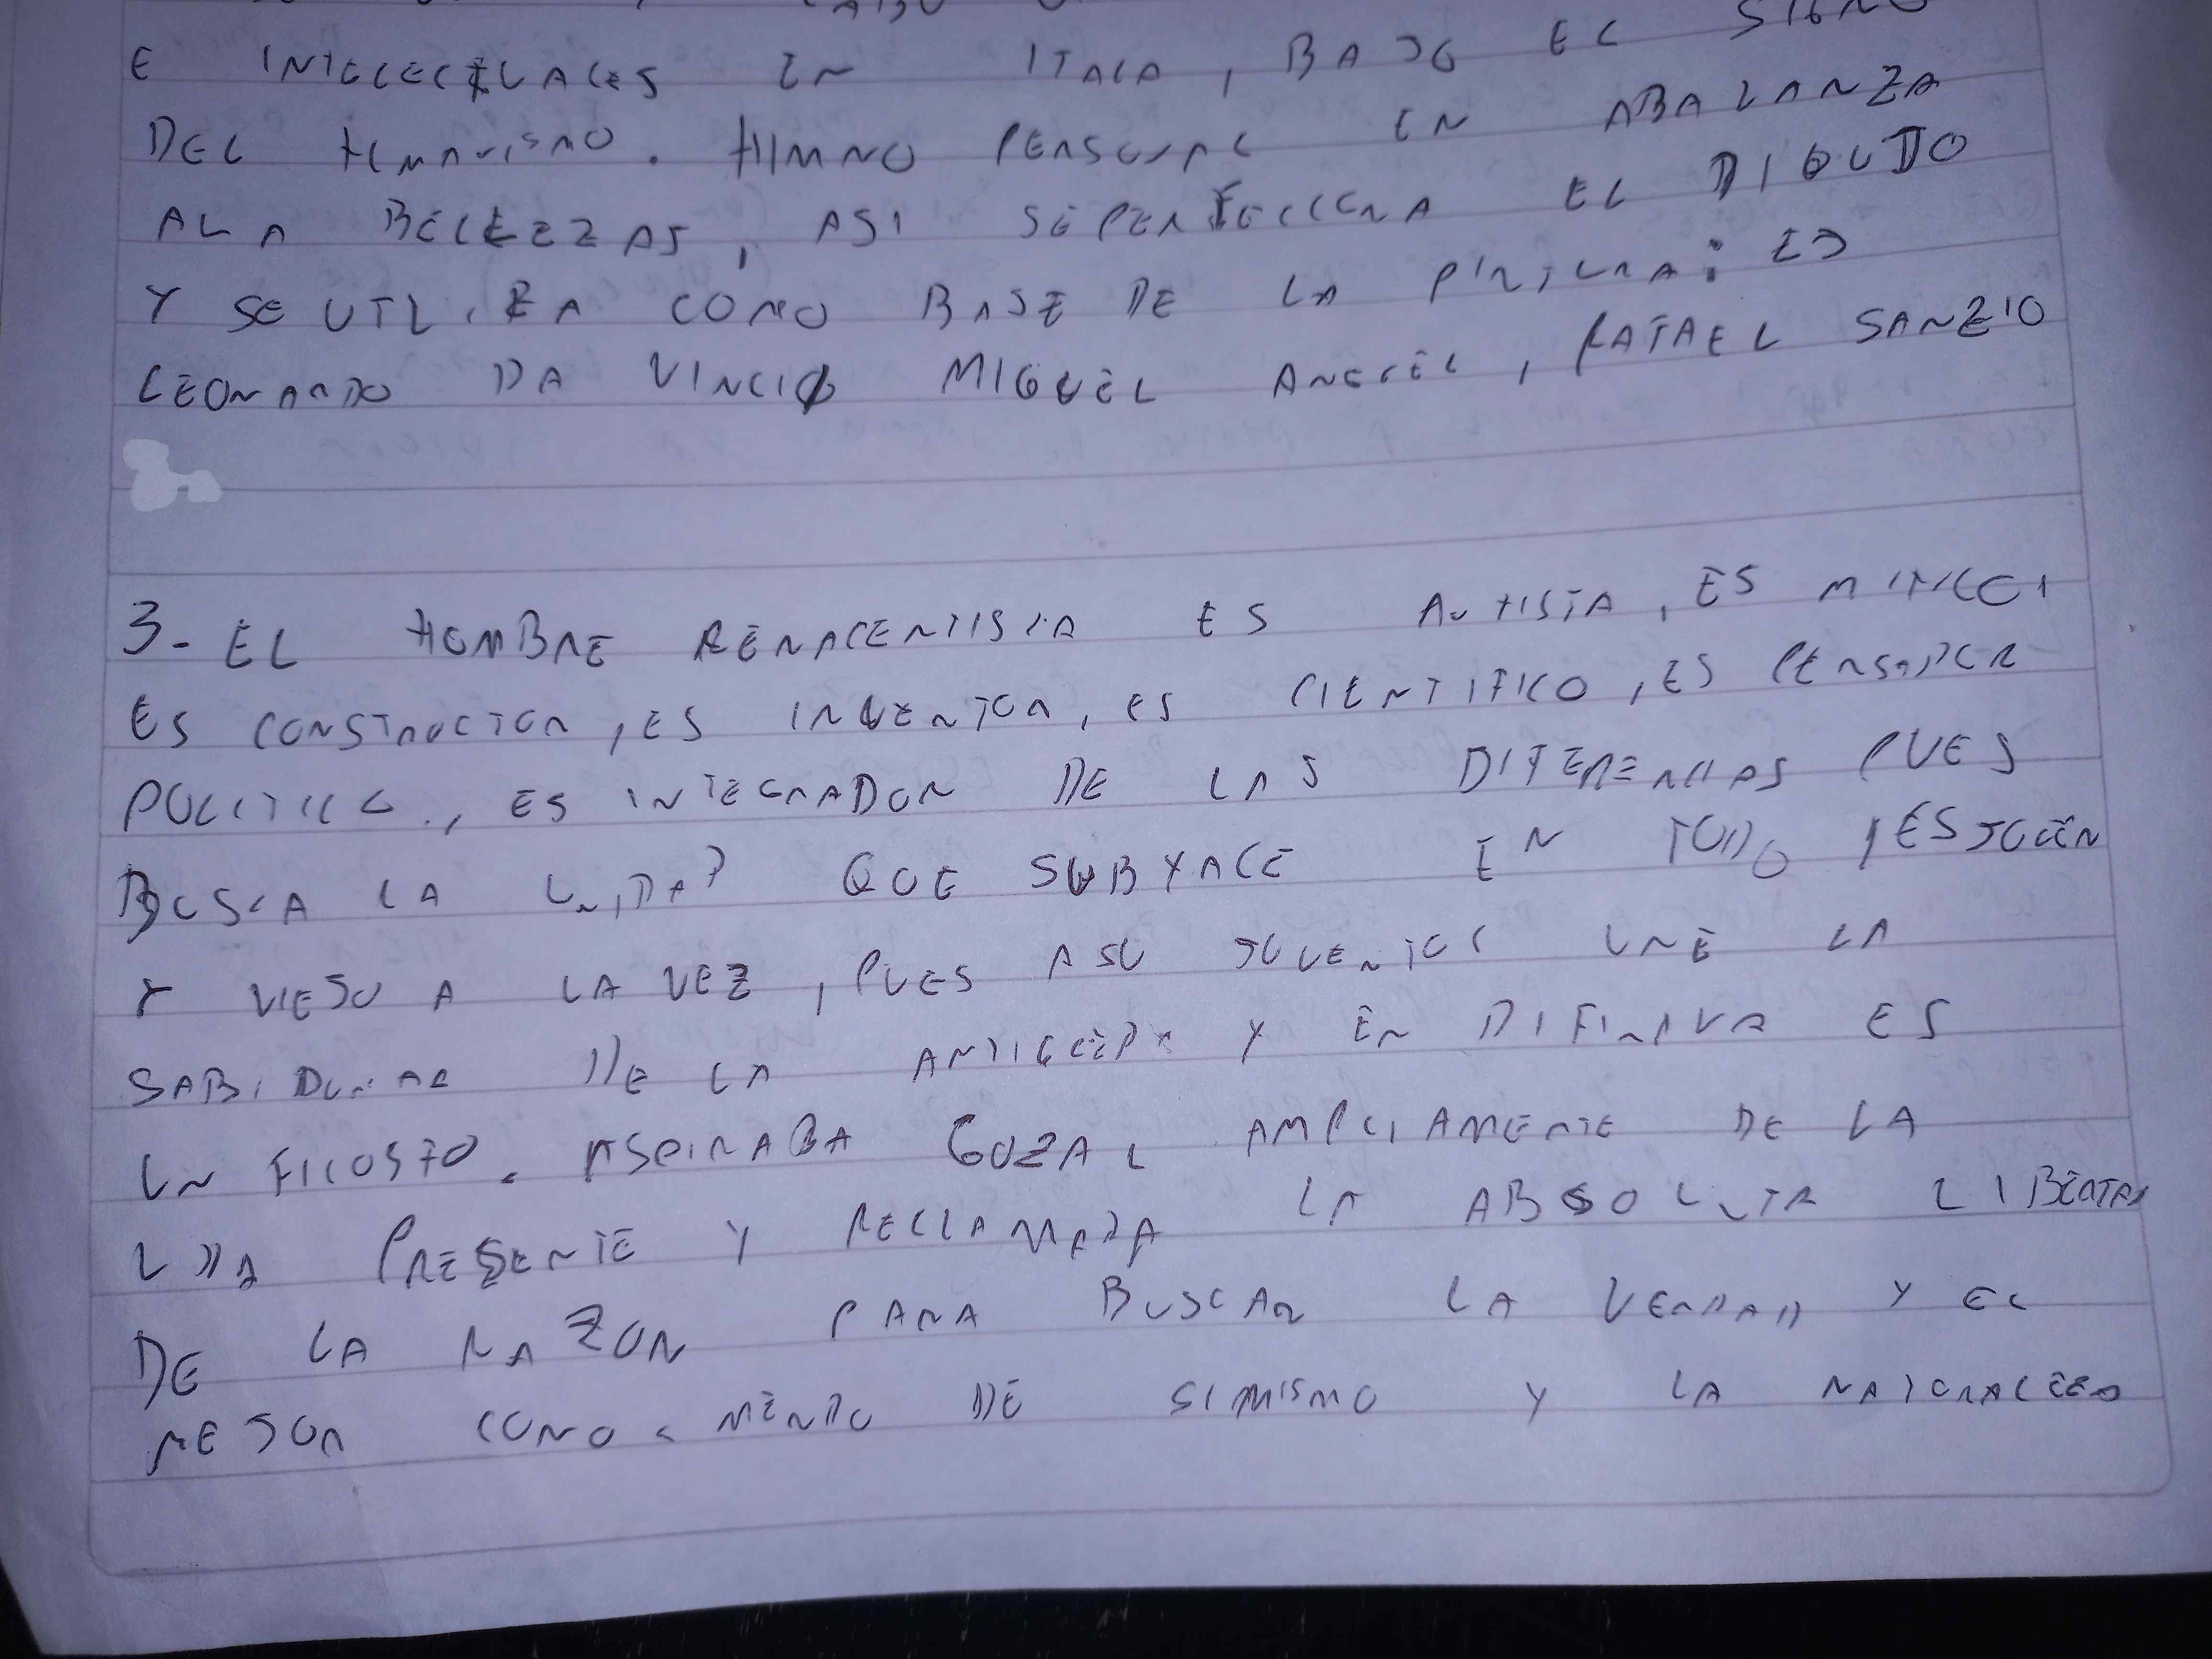 E INTELECTUALES EN ITALA, BAJO EL SIGNO
DEL HUMANISMO. HIMNO PERSONAL EN ABALANZA
ALA BELLEZZAS, ASI SE PERFECCENA EL DIBUDO
Y SE UTLIZA COMO BASE DE LA PINTURA: ES
LEONARDO DA VINCI MIGUEL ANGEEL, RAFAEL SANZIO
3- EL HOMBRE RENACENTISTA ES AUTISTA, ES
ES CONSTRUCTOR, ES INVENTOR, ES CIENTIFICO, ES PENSADOR
POLITICO, ES INTEGRADOR DE LAS DIFERENCIAS PUES
BUSCA LA UNIDAD QUE SUBYACE EN TODO, ES JOVEN
Y VIEJO A LA VEZ, PUES ASU JUVENTUD UNE LA
DE LA Y EN ES
UN FILOSFO. ASPIRABA GOZAL AMPLIAMENTE DE LA
PRESENTE Y RECLAMABA LA ABSOLUTA LIBERTAD
DE LA RAZON PARA BUSCAR LA VERDAD Y EL
MEJOR CONOCIMENDO DE SI MISMO Y LA NATURALEZA